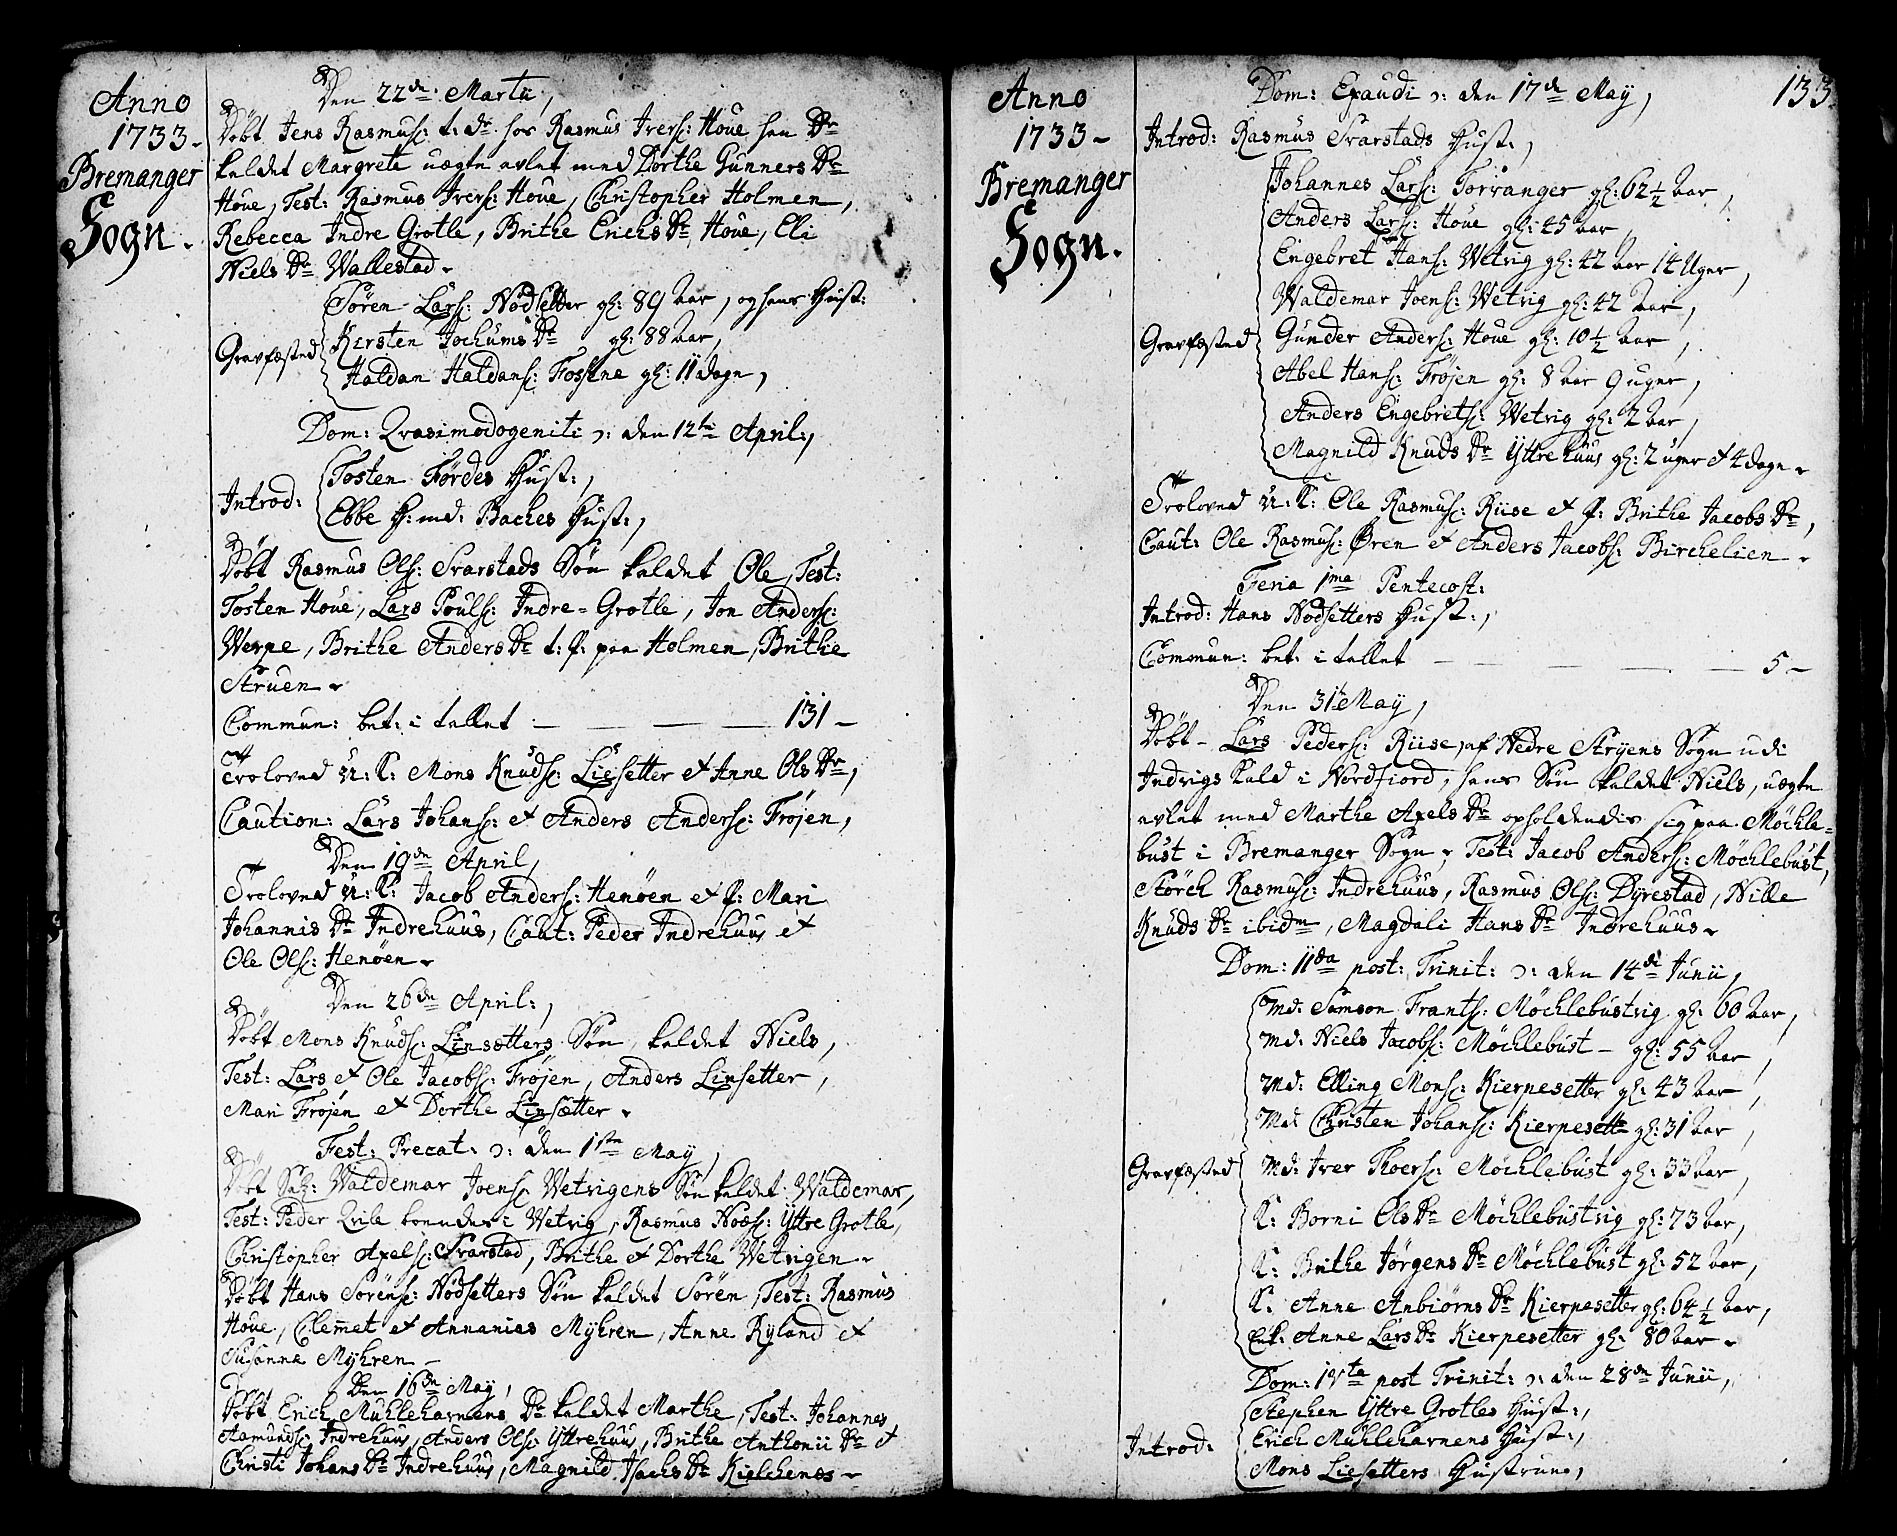 Anno
1733.
Bremanger
Sogn.
Den 22de Martii,
Døbt Jens Rasmus: t. d. hos Rasmus Iverß: Houe hen Dr
kaldet Margrete uægte avlet med Dorthe Gunners Dr
Houe, Test: Rasmus Iverß: Houe, Christopher Holmen,
Rebecca Indre Grotle, Brithe Erichs Dr Houe, Eli
Niels Dr Wallestad.
Søren Larß: Nødsetter gl: 89 Aar, og hans Hust:
Kirsten Jochums Dr gl: 88 aar,
Gravfæsted
Haldan Haldanß: Fosene gl: 11 dage,
Dom: Qvasimodogeniti ɔ: den 12te April:,
Tosten Førdes Hust:,
Introd:
Ebbe H: md: Baches Hust:,
Døbt Rasmus Olß: Svarstads Søn kaldet Ole, Test:
Tosten Houe, Lars Poulß: Indre-Grotle, Jon Anderß:
Werpe, Brithe Anders Dr t. P. paa Holmen, Brithe
Struen.
Commun: bet: i tallet — — — 131 —
Troloved U: K: Mons Knudß: Liesetter et Anne Ols Dr,
Caution: Lars Johanß: et Anders Anderß: Frøjen,
Den 19de April,
Troloved U: K: Jacob Anderß: Henøen et P: Mari
Johannis Dr Indrehuus, Caut: Peder Indrehuus et
Ole Olß: Henøen.
Den 26de April:,
Døbt Mons Knudß: Linsætters Søn, kaldet Niels,
Test: Lars et Ole Jacobß: Frøjen, Anders Linsetter,
Mari Frøjen et Dorthe Linsætter.
Fest: Precat: ɔ: den 1ste May,
Døbt Sal: Waldemar Joenß: Wetvigens Søn kaldet Waldemar,
Test: Peder Qvile boendes i Wetvig, Rasmus Noeß: Yttre Grotle,
Christopher Axelß: Svarstad, Brithe et Dorthe Wetvigen.
Døbt Hans Sørenß: Nødsetters Søn kaldet Søren, Test: Rasmus
Houe, Clemmet et Annanies Myhren, Anne Ryland et
Susanne Myhren.
Den 16de May,
Døbt Erich Muhlehavnens Dr kaldet Marthe, Test: Johannes
Aamundß: Indrehuus, Anders Olß: Yttrehuus, Brithe Anthonii Dr et
Christi Johans Dr Indrehuus, Magnild Isachs Dr Kielchenes.
Anno
1733 —
Bremanger
Sogn.
133
Dom: Exaudi ɔ: den 17de May,
Introd: Rasmus Svarstads Hust:,
Johannes Larß: Torvanger gl: 62 ½ Aar,
Anders Larß: Houe gl: 45 aar,
Engebret Hanß: Wetvig gl: 42 aar 14 Uger,
Waldemar Joenß: Wetvig gl: 42 Aar,
Gravfæsted
Gunder Anderß: Houe gl: 10 ½ Aar,
Abel Hanß: Frøjen gl: 8 aar 9 uger,
Anders Engebretß: Wetvig gl: 2 Aar,
Magnild Knuds Dr Yttrehuus gl: 2 uger et 4 dage.
Troloved U: K: Ole Rasmusß: Riise et P: Brithe Jacobs Dr,
Caut: Ole Rasmusß: Øren et Anders Jacobß: Birchelien.
Feria 1ma Pentecost:
Introd: Hans Nødsetters Hust:,
Commun: bet: i tallet — — — — 5 —
Den 31te May,
Døbt Lars Pederß: Riise, af Nedre Stryens Sogn udi
Indvigs kald i Nordfiord, hans Søn kaldet Niels, uægte
avlet med Marthe Axels Dr opholdendis sig paa Møchle-
bust i Bremanger Sogn. Test: Jacob Anderß: Møchlebust,
Størch Rasmusß: Indrehuus, Rasmus Olß: Dyrestad, Nille
Knuds Dr ibidm, Magdali Hans Dr Indrehuus.
Dom: IIda post: Trinit: ɔ: den 14de Junii,
Md: Samson Frantß: Møchlebustvig gl: 60 Aar,
Md: Niels Jacobß: Møchlebust — gl: 55 Aar,
Md: Elling Monß: Kierpesetter gl: 43 Aar,
Md: Christen Johanß: Kierpesetter gl: 31 Aar,
Gravfæsted
Md: Iver Thoerß: Møchlebust gl: 33 Aar,
K: Borni Ols Dr Møchlebustvig gl: 73 Aar,
K: Brithe Jørgens Dr Møchlebust gl: 52 Aar,
K: Anne Anbiørns Dr Kierpesetter gl: 64 ½ Aar,
Enk: Anne Lars Dr Kierpesetter gl: 80 Aar.
Dom: IVta post Trinit: ɔ: den 28de Junii,
Stephen Yttre Grotles Hust:,
Introd:
Erich Muhlehavnens Hust:,
Mons Liesetters Hustrue,